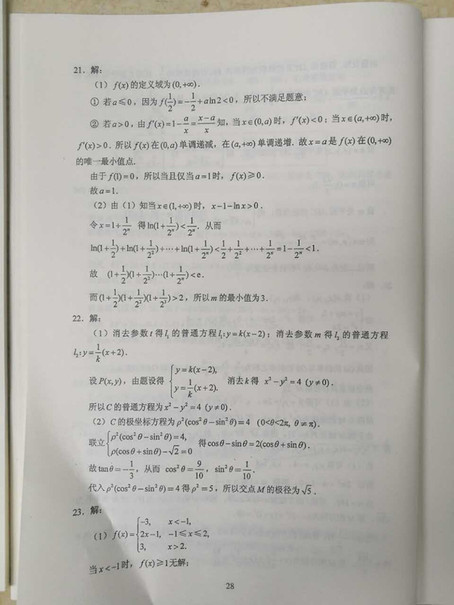 21. 解:
(1) f(x)的定义域为(0,+∞).
① 若a≤0, 因为f(1/2)=-1/2+aln2<0, 所以不满足题意;
② 若a>0, 由f′(x)=1-a/x=(x-a)/x知, 当x∈(0,a)时, f′(x)<0; 当x∈(a,+∞)时,
f′(x)>0. 所以f(x)在(0,a)单调递减, 在(a,+∞)单调递增. 故x=a是f(x)在(0,+∞)
的唯一最小值点.
由于f(1)=0, 所以当且仅当a=1时, f(x)≥0.
故a=1.
(2) 由(1)知当x∈(1,+∞)时, x-1-lnx>0.
令x=1+1/2ⁿ 得ln(1+1/2ⁿ)<1/2ⁿ. 从而
ln(1+1/2)+ln(1+1/2²)+⋯+ln(1+1/2ⁿ)<1/2+1/2²+⋯+1/2ⁿ=1-1/2ⁿ<1.
故 (1+1/2)(1+1/2²)⋯(1+1/2ⁿ)<e.
而(1+1/2)(1+1/2²)(1+1/2³)>2, 所以m的最小值为3.
22. 解:
(1) 消去参数t得l₁的普通方程l₁:y=k(x-2); 消去参数m得l₂的普通方程
l₂:y=1/k(x+2).
设P(x,y), 由题设得 {y=k(x-2), y=1/k(x+2). 消去k得 x²-y²=4 (y≠0).
所以C的普通方程为x²-y²=4 (y≠0).
(2) C的极坐标方程为ρ²(cos²θ-sin²θ)=4 (0<θ<2π, θ≠π).
联立{ρ²(cos²θ-sin²θ)=4, ρ(cosθ+sinθ)-√2=0 得cosθ-sinθ=2(cosθ+sinθ).
故tanθ=-1/3, 从而 cos²θ=9/10, sin²θ=1/10.
代入ρ²(cos²θ-sin²θ)=4得ρ²=5, 所以交点M的极径为√5.
23. 解:
(1) f(x)={-3, x<-1, 2x-1, -1≤x≤2, 3, x>2.
当x<-1时, f(x)≥1无解;
28